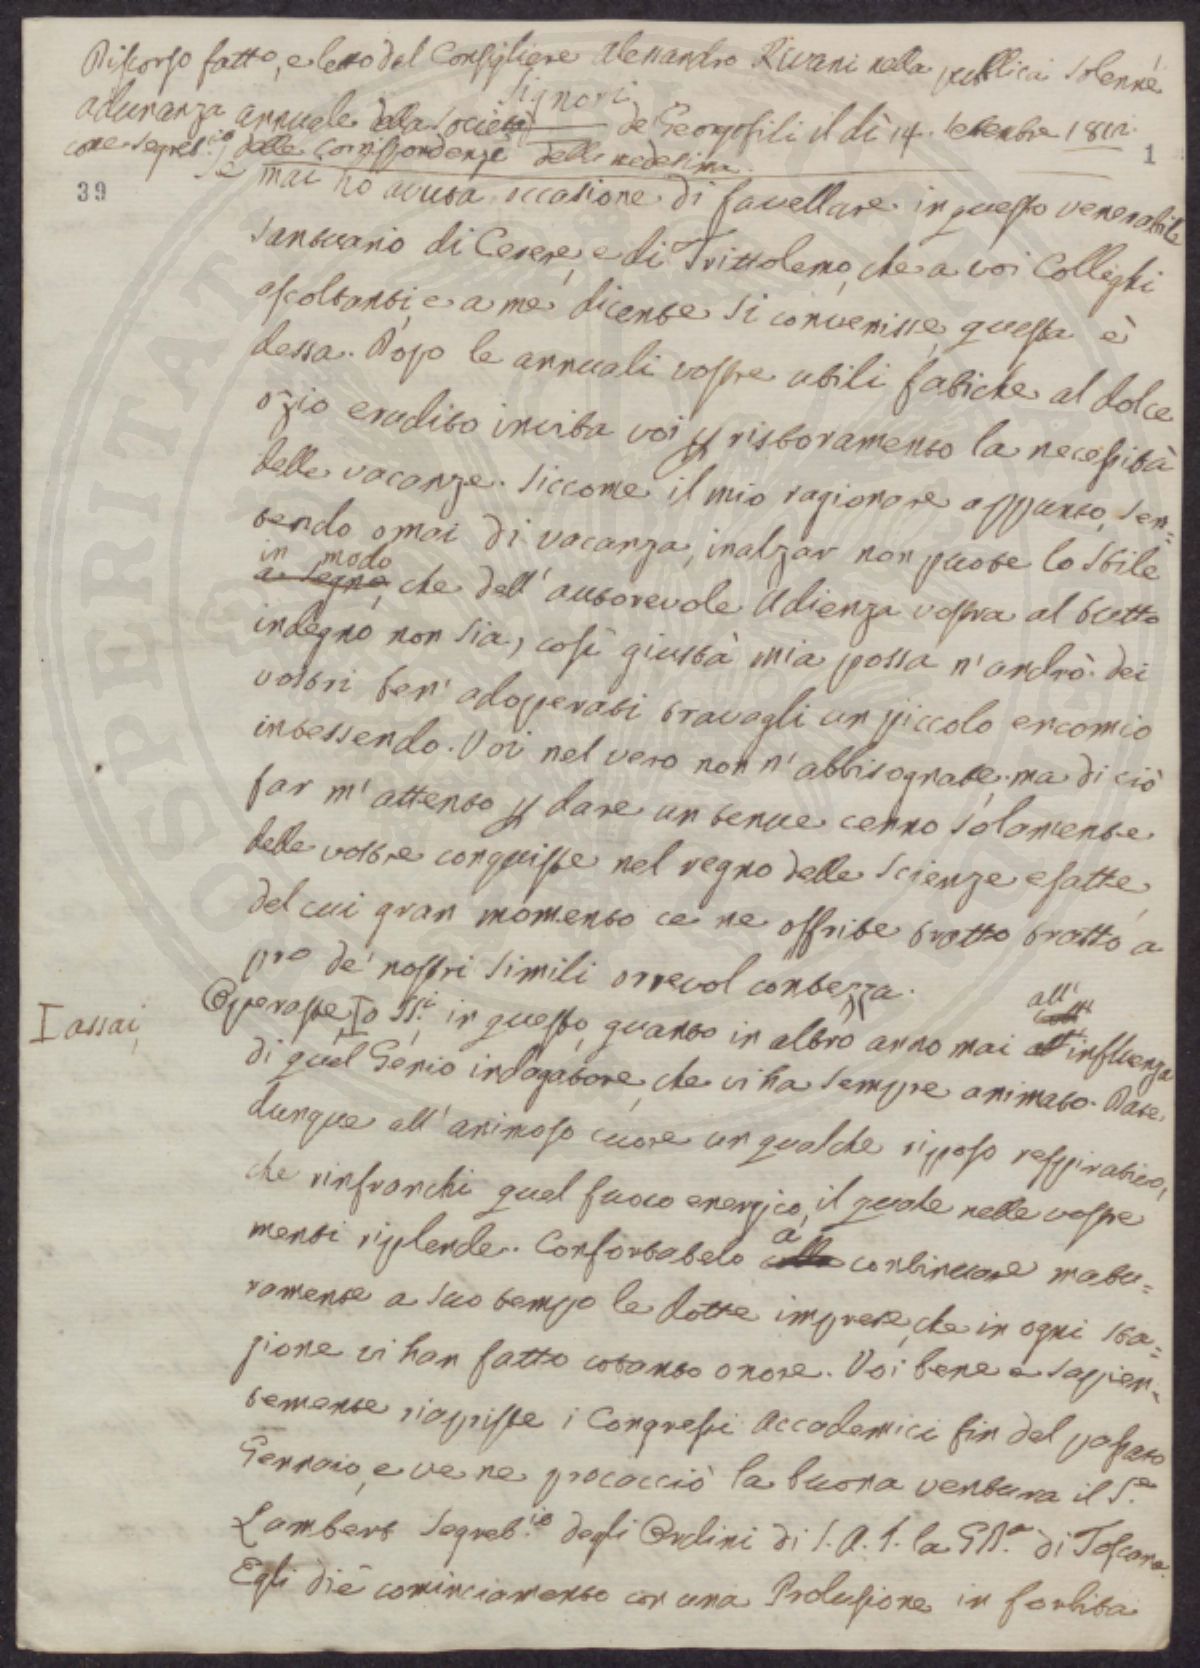 Discorso fatto, e letto dal Consigliere Alessandro Rivani nella pubblica solenne
Signori
adunanza annuale della Società de Georgofili il dì 14. Settembre 1812.
come Segret.io delle corrispondenze della medesima.
1
39
Se mai ho avuta occasione di favellare in questo venerabile
Santuario di Cerere, e di Trittolemo, che a voi Colleghi
ascoltanti, e a me dicente si convenisse, questa è
dessa. Dopo le annuali vostre utili fatiche al dolce
ozio erudito invita voi p ristoramento la necessità
delle vacanze. Siccome il mio ragionare appunto, sen=
tendo omai di vacanza, inalzar non puote lo stile
in modo
a segno, che dell' autorevole Udienza vostra al tutto
indegno non sia, così giusta mia possa n' andrò dei
vostri ben' adoperati travagli un piccolo encomio
intessendo. Voi nel vero non n' abbisognate, ma di ciò
far m' attento p dare un tenue cenno solamente
delle vostre conquiste nel regno delle Scienze esatte,
del cui gran momento ce ne offrite tratto tratto a
pro de' nostri simili orrevol contezza.
I assai,
Operaste, I o SS.i in questo, quanto in altro anno mai
all'
influenza
di quel Genio indagatore, che vi ha sempre animato. Date
dunque all' animoso cuore un qualche riposo respirativo,
che rinfranchi quel fuoco energico, il quale nelle vostre
menti risplende. Confortatelo
a
alla continuare matu=
ramente a suo tempo le dotte imprese, che in ogni sta=
gione vi han fatto cotanto onore. Voi bene e sapien=
temente riapriste i Congressi Accademici fin dal passato
Gennaio, e ve ne procacciò la buona ventura il S.e
Lambert Segret.io degli Ordini di S. A. I. la GD.a di Toscana.
Egli diè cominciamento con una Prolusione in forbita